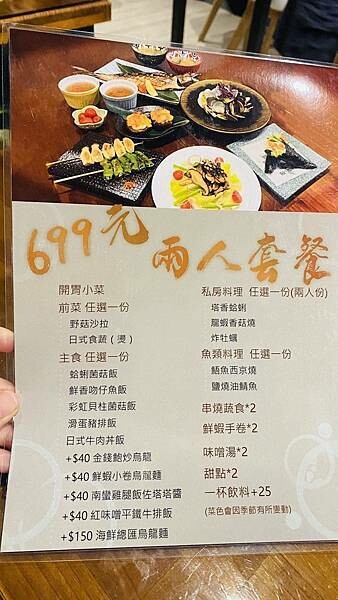 699元
兩人套餐
開胃小菜
前菜 任選一份
野菇沙拉
日式食蔬（燙）
主食 任選一份
蛤蜊菌菇飯
鮮香吻仔魚飯
彩虹貝柱菌菇飯
滑蛋豬排飯
日式牛肉丼飯
+$40 金錢鮑炒烏龍
+$40 鮮蝦小卷烏龍麵
+$40 南蠻雞腿飯佐塔塔醬
+$40 紅味噌平鐵牛排飯
+$150 海鮮總匯烏龍麵
私房料理 任選一份(兩人份)
塔香蛤蜊
龍蝦香菇燒
炸牡蠣
魚類料理 任選一份
鯃魚西京燒
鹽燒油鯖魚
串燒蔬食*2
鮮蝦手卷*2
味噌湯*2
甜點*2
一杯飲料+25
(菜色會因季節有所變動)